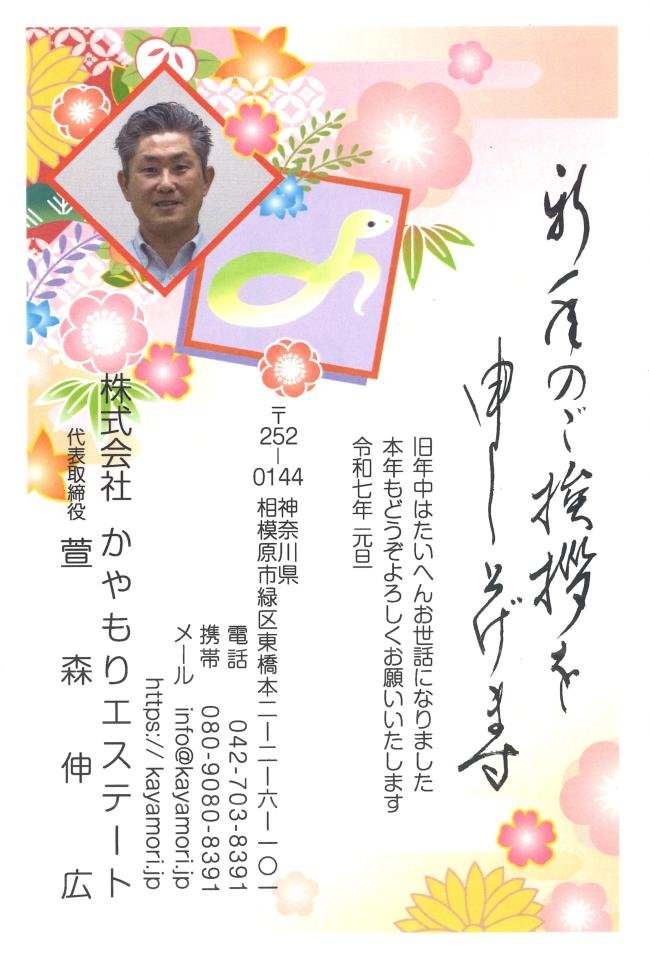 新年のご挨拶を
申し上げます
旧年中はたいへんお世話になりました
本年もどうぞよろしくお願いいたします
令和七年 元旦
〒252-0144
神奈川県
相模原市緑区東橋本二-二-六-一〇一
電話 042-703-8391
携帯 080-9080-8391
メール info@kayamori.jp
https://kayamori.jp
株式会社 かやもりエステート
代表取締役 萱森伸広